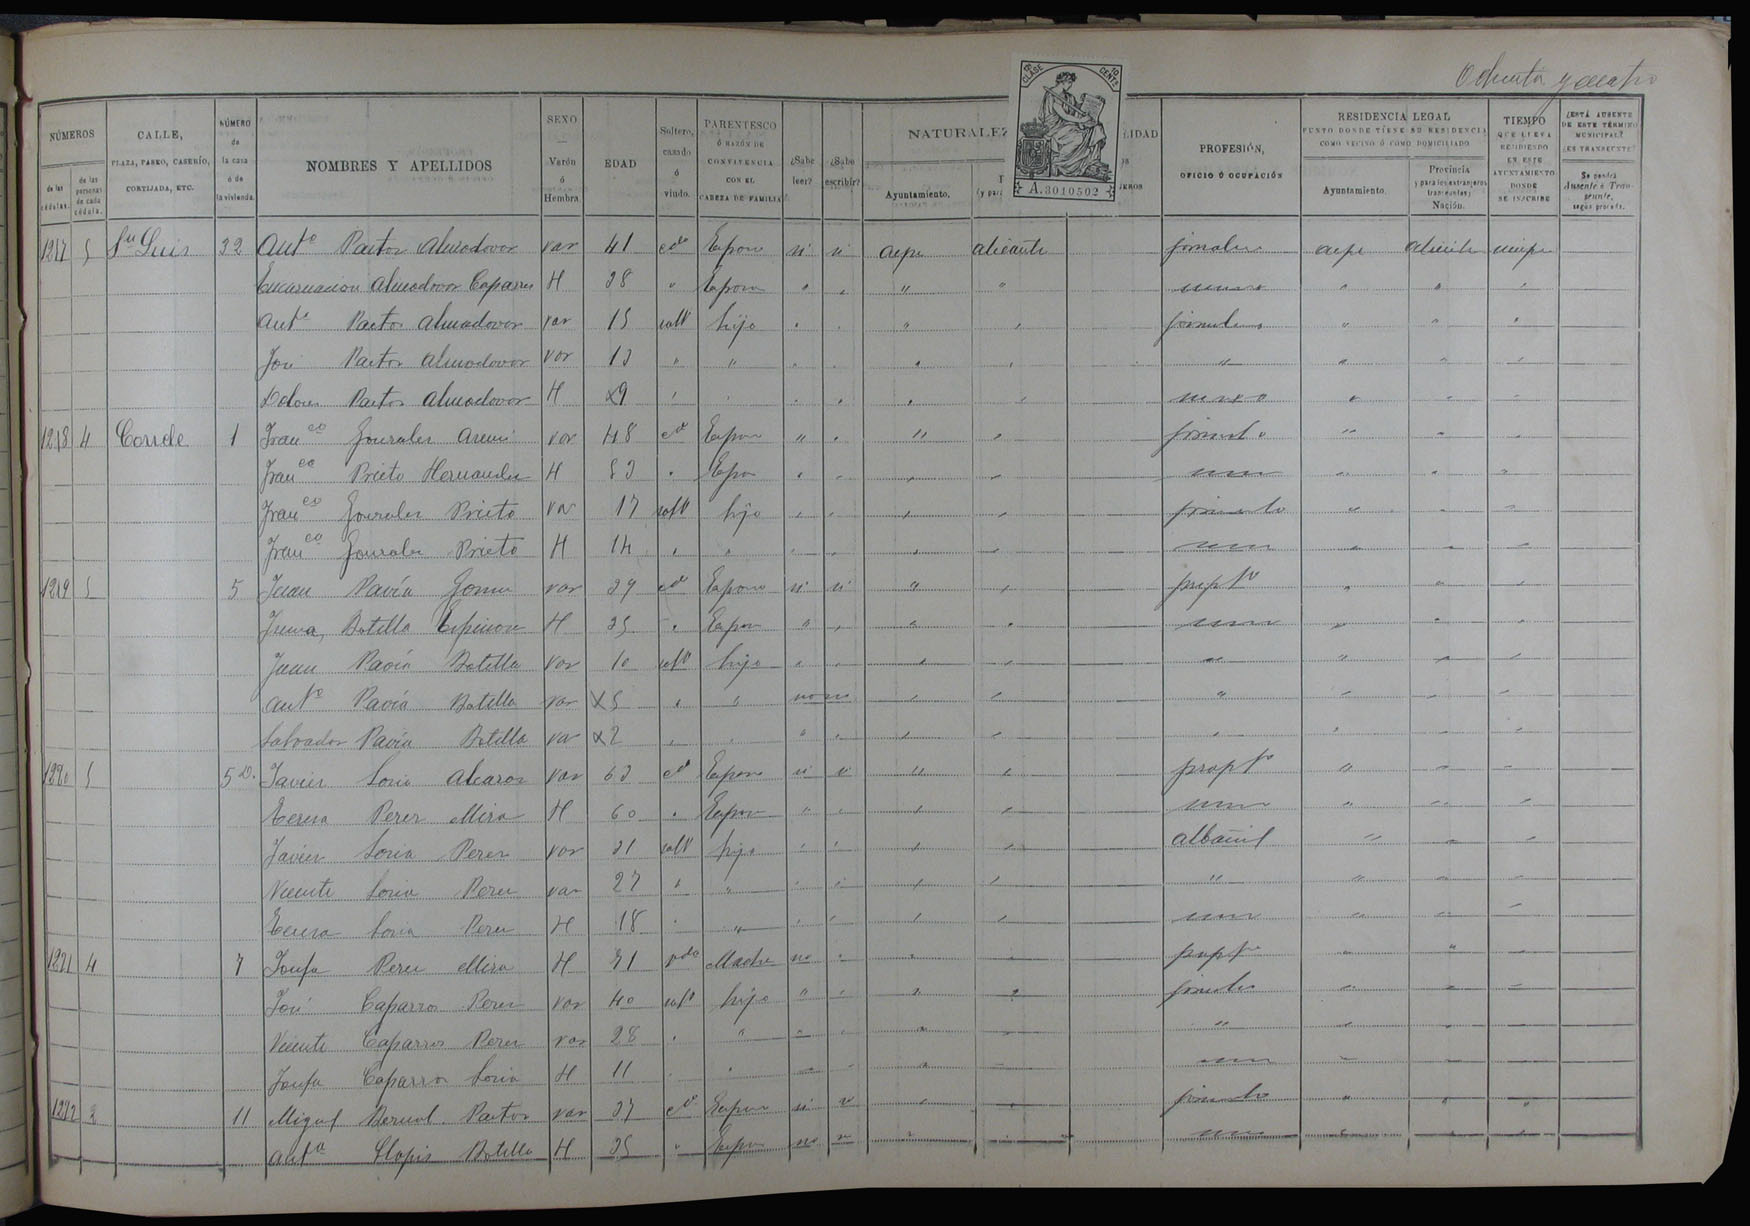 Ochenta y cuatro
12ª CLASE 10 CENTS
A.3010502
NÚMEROS
de las cédulas.
de las personas de cada cédula.
CALLE,
PLAZA, PASEO, CASERÍO,
CORTIJADA, ETC.
NÚMERO
de
la casa
ó de
la vivienda.
NOMBRES Y APELLIDOS
SEXO
Varón
ó
Hembra
EDAD
Soltero,
casado
ó
viudo.
PARENTESCO
Ó RAZÓN DE
CONVIVENCIA
CON EL
CABEZA DE FAMILIA
¿Sabe leer?
¿Sabe escribir?
NATURALEZ
LIDAD
Ayuntamiento.
PROFESIÓN,
OFICIO Ó OCUPACIÓN
RESIDENCIA LEGAL
PUNTO DONDE TIENE SU RESIDENCIA
COMO VECINO Ó COMO DOMICILIADO
Ayuntamiento.
Provincia
y para los extranjeros
transeuntes:
Nación.
TIEMPO
QUE LLEVA
RESIDIENDO
EN ESTE
AYUNTAMIENTO
DONDE
SE INSCRIBE
¿ESTÁ AUSENTE
DE ESTE TÉRMINO
MUNICIPAL?
¿ES TRANSEUNTE?
Se pondrá
Ausente ó Tran-
seunte,
según proceda.
1217 5 Sn Luis 32 Antº Pastor Almodovar var 41 cdo Esposo si si aspe alicante jornalero aspe alicante siempre
Encarnacion Almodovar Caparros H 38 " Esposa " " " "
Antº Pastor Almodovar var 15 soltº hijo " " " " jornalero " " "
José Pastor Almodovar var 13 " " " " " " " " " "
Dolores Pastor Almodovar H x9 " " " " " "
1218 4 Conde 1 Franco Gonzalez var 48 cdo Esposo " " " " jornalero " " "
Franca Prieto Hernandez H 53 " Espa " " " "
Franco Gonzalez Prieto var 17 soltº hijo " " " " jornalero " " "
Franca Gonzalez Prieto H 14 " " " " " "
1219 5 5 Juan Pavía Gomez var 39 cdo Esposo si si " " propº " " "
Botella Espinosa H 35 " Esposa " " " "
Juan Pavía Botella var 10 soltº hijo " " " " " " " "
Antº Pavía Botella var x5 " " no no " " " " " "
Salvador Pavía Botella var x2 " " " " " " " " " "
1220 5 5 D. Javier Soria Alcaraz var 63 cdo Esposo si si " " propº " " "
Teresa Perez Mira H 60 " Esposa " " " "
Javier Soria Perez var 31 soltº hijo " " " " albañil " " "
Vicente Soria Perez var 27 " " " " " " " " " "
Teresa Soria Perez H 18 " " " " " "
1221 4 7 Josefa Perez Mira H 71 vda Madre no " " " propª " " "
José Caparros Perez var 40 soltº hijo " " " " jornalero " " "
Vicente Caparros Perez var 28 " " " " " " " " " "
Josefa Caparros Soria H 11 " " " " " "
1222 2 11 Miguel Bernal Pastor var 37 cdo Esposo si si " " jornalero " " "
Antª Llopis Botella H 35 " Esposa no no " "